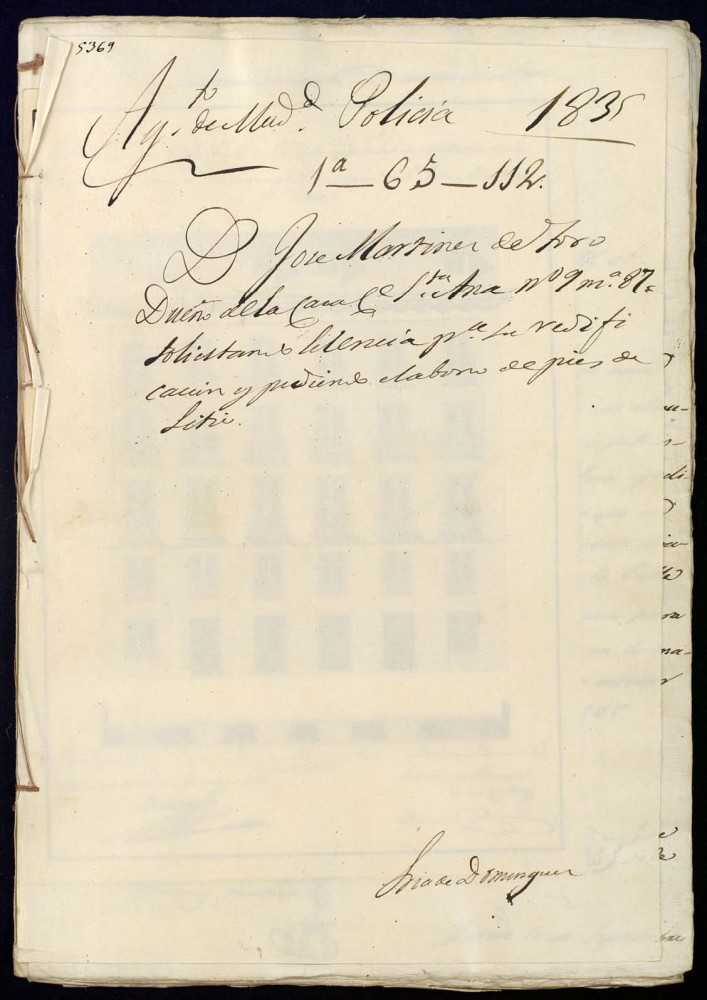 5369
Ay.to de Mad.d Policia 1835
1a — 65 — 112.
D Jose Martinez de Toro
Dueño de la Casa Ce S.ta Ana nº 9 m.a 87.
solicitando licencia p.a su redifi
cacion y pidiendo el abono de pies de
Sitio.
Sria de Dominguez